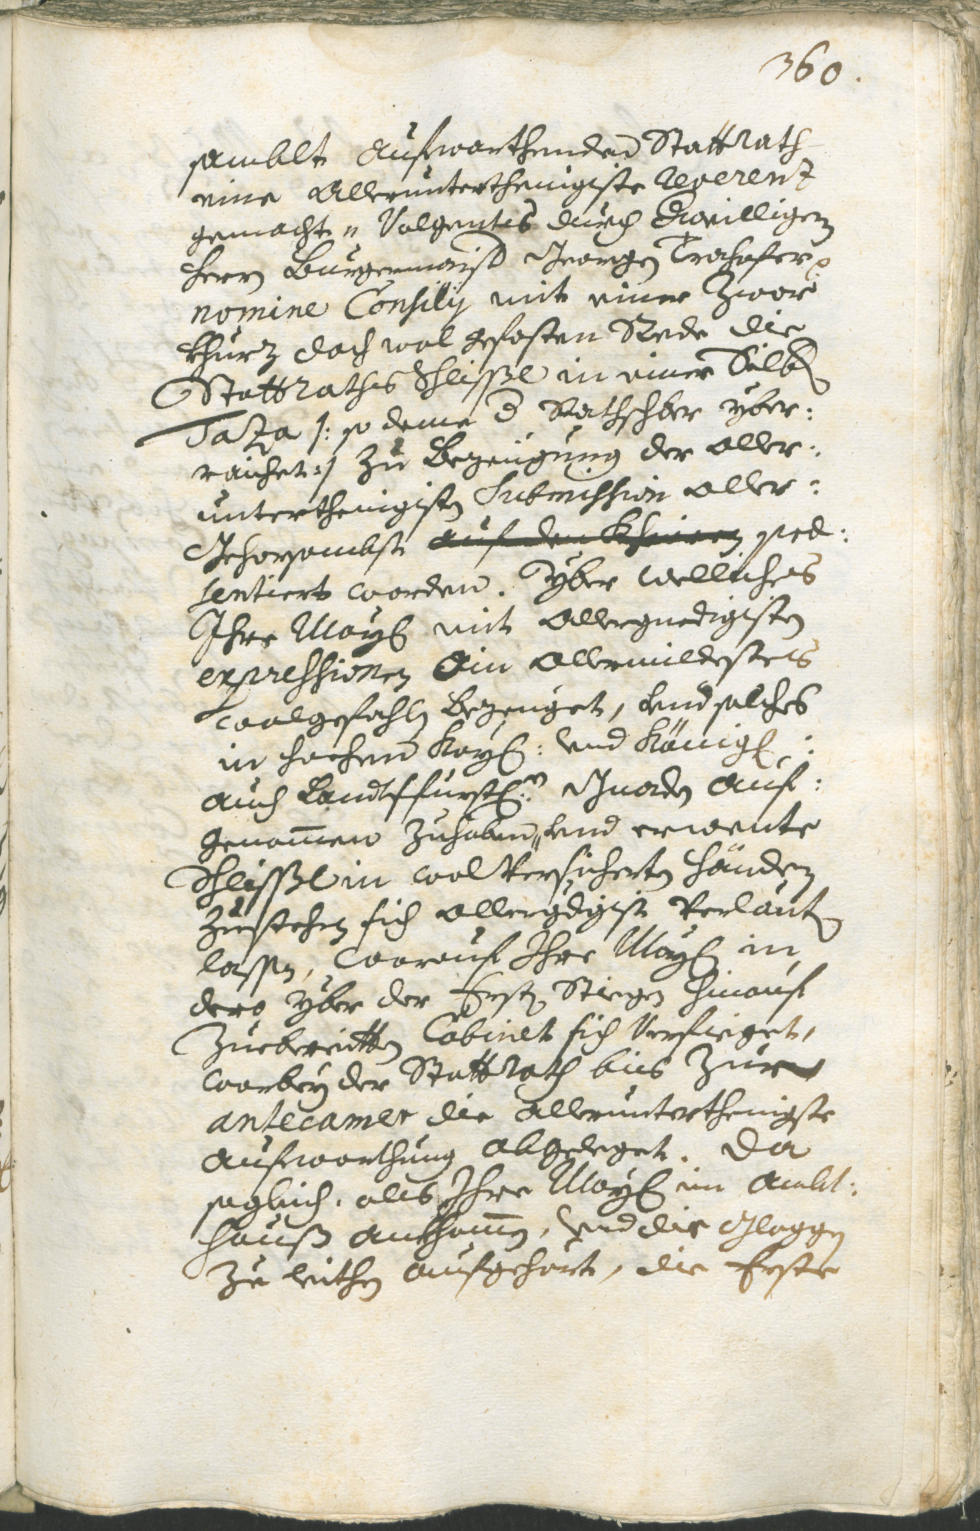 360.
samblt Aufwarthenden Stattrath
eine Allerunterthenigiste Reverentz
gemacht, Volgents durch Ewilligen
Herrn Burgermaister Georgen
nomine Consilij mit einer zwar
khurz doch wol gefasten Rede die
Stattraths Schlissl in einer Silb
Taza /: so deme d Rathschber yber:
raichet :/ zu Bezeugung der Aller:
unterthenigisten Submission Aller:
Gehorsambst auf den Khnien pre:
sentiert worden. Yber welliches
Ihre Mayt mit Allergnedigisten
expressionen Ain Allermildestes
wolgefahln bezeuget, und solches
in hochen Kays: und König:
auch Landtsfürstl: Gnaden Auf:
genommen zuhaben, und ernente
Schlissl in wol Versicherten Händen
zu stehen sich Allergdgist verlauten
lassen, worauf Ihre Mayt in
dero yber der Ersten Stiegen hinauf
Zuebereitten Cabinet sich verfieget,
warbey der Stattrath bis zur
antecamer die Allerunterthenigste
Aufwarthung abgeleget. Da
sogleich, als Ihre Mayt im Ambt:
hauß ankhommen, und die Gloggen
zu leithen aufgehört, die Erste